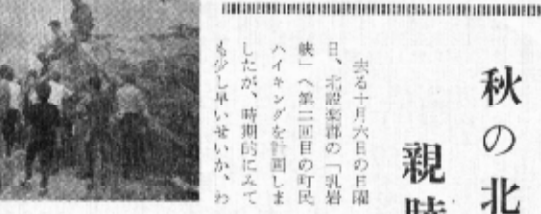 秋の北
親時
去る十月六日の日曜
日、北設楽郡の「乳岩
峡」へ第二回目の町民
ハイキングを計画しま
したが、時期的にみて
も少し早いせいか、わ